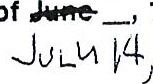 of June _,
July 14,